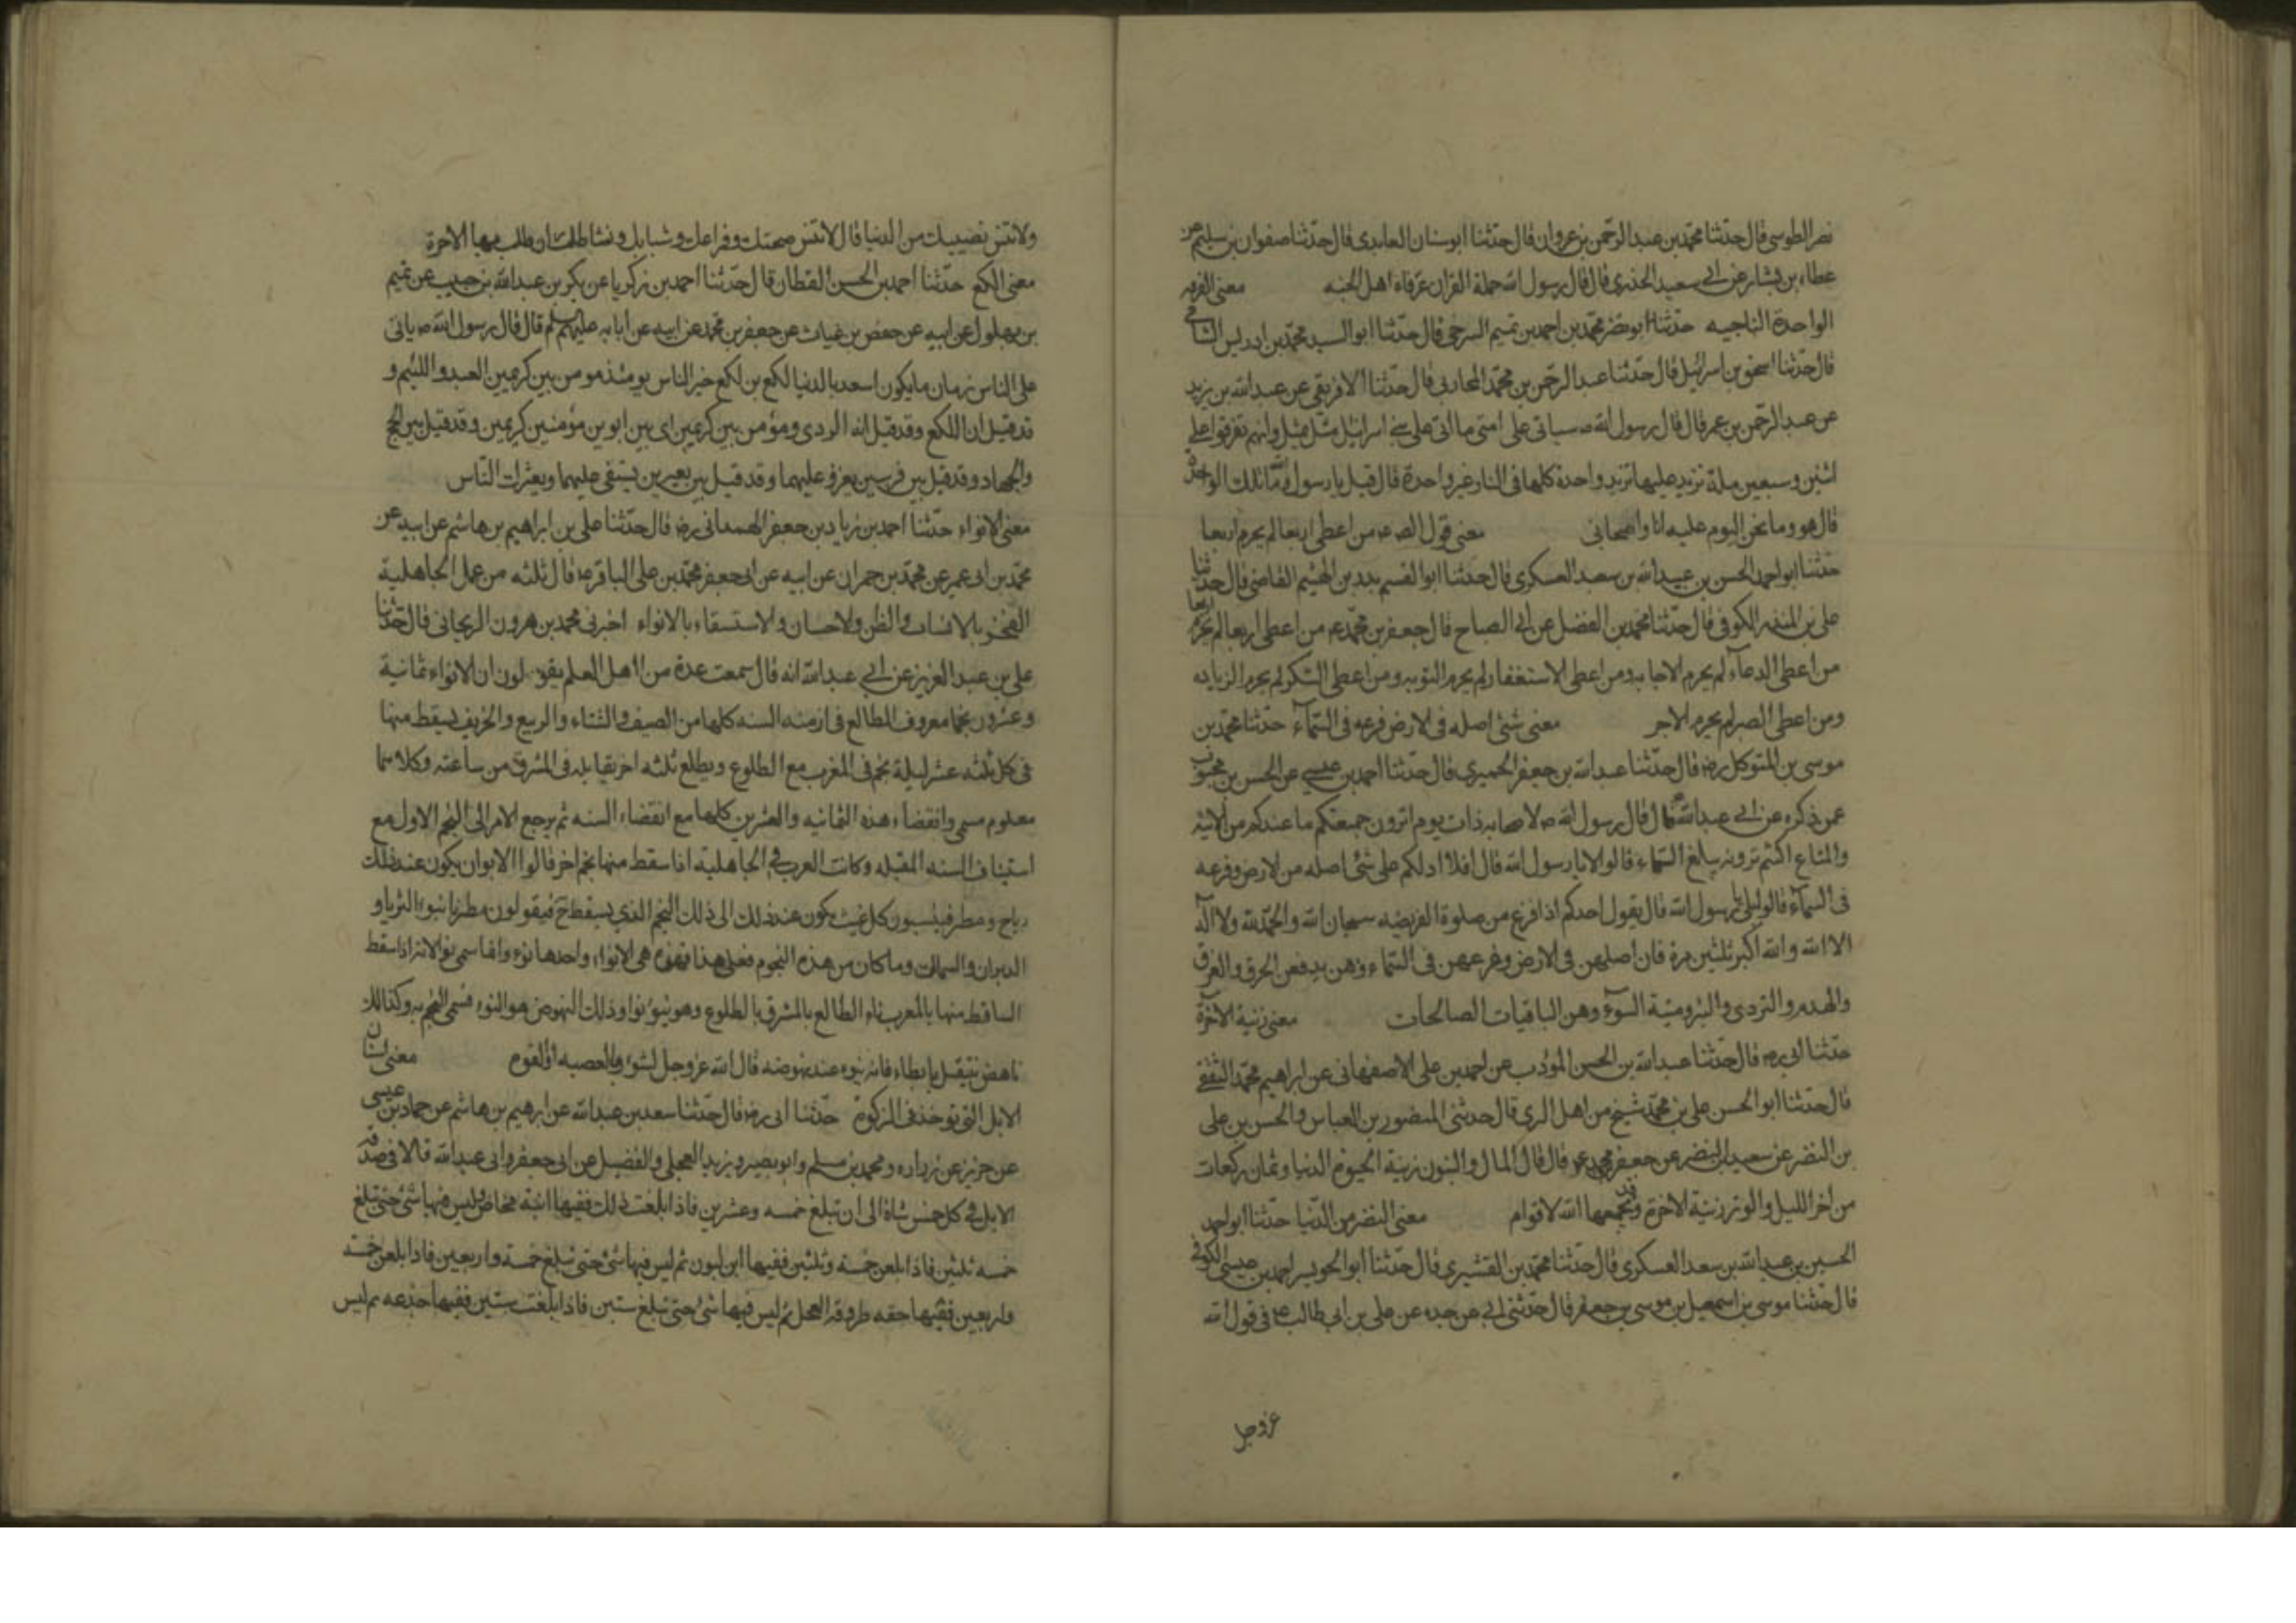 نصر الطوسی قال حدّثنا محمّد بن عبد الرحمن بن غزوان قال حدّثنا ابو سنان العابدی قال حدّثنا صفوان بن سلیم عن
عطاء بن بشار عن ابی سعید الخذری قال قال رسول الله حملة القرآن عرفاة اهل الجنه معنی الفرقه
الواحدة الناجیه حدّثنا ابو نضر محمّد بن احمد بن تمیم السرخی قال حدّثنا ابو السید محمّد بن ادریس الشافی
قال حدّثنا اسحق بن اسرائیل قال حدّثنا عبد الرحمن بن محمّد المحاربی قال حدّثنا الافریقی عن عبد الله بن یزید
عن عبد الرحمن بن عمر قال قال رسول الله ص سیاتی علی امتی ما اتی علی بنی اسرائیل مثل بمثل وانهم تفرقوا علی
اثنین وسبعین ملة تزید علیها تزید واحدة کلها فی النار غیر واحدة قال قیل یا رسول الله ما تلک الواحدة
قال هو وما نحن الیوم علیه انا واصحابی معنی قول الص ع من اعطی اربعا لم یحرم اربعا
حدّثنا ابو احمد الحسن بن عبید الله بن سعید العسکری قال حدّثنا ابو القسم بدر بن الهثیم القاضی قال حدّثنا
علی بن المنذر الکوفی قال حدّثنا محمّد بن الفضل عن ابی الصباح قال جعفر بن محمّد ع من اعطی اربعا لم یحرم اربعا
من اعطی الدعاء لم یحرم الاجابه ومن اعطی الاستغفار لم یحرم التوبه ومن اعطی الشکر لم یحرم الزیاده
ومن اعطی الصبر لم یحرم الاجر معنی شئ اصله فی الارض فرعه فی السّمآء حدّثنا محمّد بن
موسی بن المتوکل رضه قال حدّثنا عبد الله بن جعفر الحمیری قال حدّثنا احمد بن عیسی عن الحسن بن محبوب
عمن ذکره عن ابی عبد الله ع قال قال رسول الله ص لاصحابه ذات یوم اترون جمیعکم ما عندکم من الانیه
والمتاع اکنتم ترونه یبلغ السّماء قالوا لا یا رسول الله قال افلا ادلکم علی شئ اصله من الارض وفرعه
فی السمآء قالوا بلی یا رسول الله قال یقول احدکم اذا فرغ من صلوة الفریضه سبحان الله والحمّد لله ولا اله
الا الله والله اکبر ثلثین مرة فان اصلهن فی الارض وفرعهن فی السّماء وهن یدفعن الحرق والغرق
والهدم والتردی والبرومیتة السوّء وهن الباقیات الصالحات معنی زینة الاخرة
حدّثنا ابی ره قال حدّثنا عبد الله بن الحسن المؤدب عن احمد بن علی الاصفهانی عن ابراهیم محمّد الثقفی
قال حدّثنا ابو الحسن علی بن محمّد شیخ من اهل الری قال حدثنی المنضور بن العباس والحسن بن علی
بن النضر عن سعید بن النضر عن جعفر بن محمد ع قال قال المال والبنون زینة الحیوة الدنیا وثمان رکعات
من آخر اللیل والوتر زینة الاخرة وقد یجمعها الله لاقوام معنی النضر من الدّنیا حدّثنا ابو احمد
الحسین بن عبد الله بن سعد العسکری قال حدّثنا محمّد بن القشیری قال حدّثنا ابو الحویر احمد بن عیسی الکوفی
قال حدّثنا موسی بن اسمعیل بن موسی بن جعفر قال حدّثنی ابی عن جده عن علی بن ابی طالب ع فی قول الله
عزوجل
ولا تنس نصیبک من الدنیا قال لا تنس صحتک وفراغک وشبابک ونشاطک ان طلب بها الاخرة
معنی الکع حدّثنا احمد بن الحسن القطان قال حدّثنا احمد بن زکریا عن بکر بن عبد الله بن حبیب عن تمیم
بن بهلول عن ابیه عن حفص بن غیاث عن جعفر بن محمّد عن ابیه عن ابایه علیهم السلم قال قال رسول الله ص یاتی
علی الناس زمان ما یکون اسعد بالدنیا لکع بن لکع خیر الناس یومئذ مومن بین کریمین العبد واللئیم و
قد قیل ان اللکع وقد قیل انه الردی ومؤمن بین کریمین ای بین ابوین مؤمنین کریمین وقد قیل بین الحج
والجهاد وقد قیل بین فرسین یغزو علیهما وقد قیل بین بعیرین یستقی علیهما ویعتزل النّاس
معنی الانواء حدّثنا احمد بن زیاد بن جعفر الهمدانی رضه قال حدّثنا علی بن ابراهیم بن هاشم عن ابیه عن
محمّد بن ابی عمیر عن محمّد بن حمران عن ابیه عن ابی جعفر محمّد بن علی الباقر ع قال ثلثه من عمل الجاهلیة
الفخر بالانساب والظن ولاحسان ولاستسقاء بالانواء اخبرنی محمد بن هرون الزنجانی قال حدّثنا
علی بن عبد العزیز عن ابی عبد الله انه قال سمعت عدة من اهل العلم یقولون ان الانواء ثمانیة
وعشرون نجما معروف المطالع فی ازمنه السنه کلها من الصیف والشتاء والربیع والخریف یسقط منها
فی کل ثلثه عشر لیلة نجم فی المغرب مع الطلوع ویطلع ثلثه اخر یقابله فی المشرق من ساعته وکلاهما
معلوم مسمی وانقضاء هذه الثمانیه والعشرین کلها مع انقضاء السنه ثم یرجع الامر الی النجم الاول مع
استیناف السنه المقبله وکانت العرب فی الجاهلیة اذا سقط منها نجم اخر قالوا الابوان یکون عند ذلک
ریاح ومطر فینسبون کل غیث یکون عند ذلک الی ذلک النجم الذی یسقط ح فیقولون مطرنا بنوء الثریا و
الدبران والسماک وما کان من هذه النجوم فعلی هذا فهذه هی الانواء واحدها نوء وانما سمی نوء لانه اذا سقط
الساقط منها بالمغرب ناء الطالع بالمشرق بالطلوع وهو ینوء نوا وذلک النهوض هو النوء فسمی النجم به وکذلک
ناهض بثقل بابطاء فانه ینوء عند نهوضه قال الله عزوجل لتنوء بالعصبه اولی القوه معنی اسنان
الابل التی توخذ فی الزکوة حدّثنا ابی رضه قال حدّثنا سعد بن عبد الله عن ابرهیم بن هاشم عن حماد بن عیسی
عن حریز عن زراره ومحمد بن مسلم وابو بصیر و برید العجلی والفضیل عن ابی جعفر وابی عبد الله قالا فی صدقة
الابل فی کل خمس شاة الی ان تبلغ خمسه وعشرین فاذا بلغت ذلک ففیها ابنة مخاض ولیس فیها شئ حتی تبلغ
خمسه ثلثین فاذا بلغن خمسة وثلثین ففیها ابن لبون ثم لیس فیها شئ حتی تبلغ خمسة واربعین فاذا بلغن خمسة
واربعین ففیها حقه طروقه الفحل ثم لیس فیها شئ حتی تبلغ ستین فاذا بلغت ستین ففیها جذعه ثم لیس